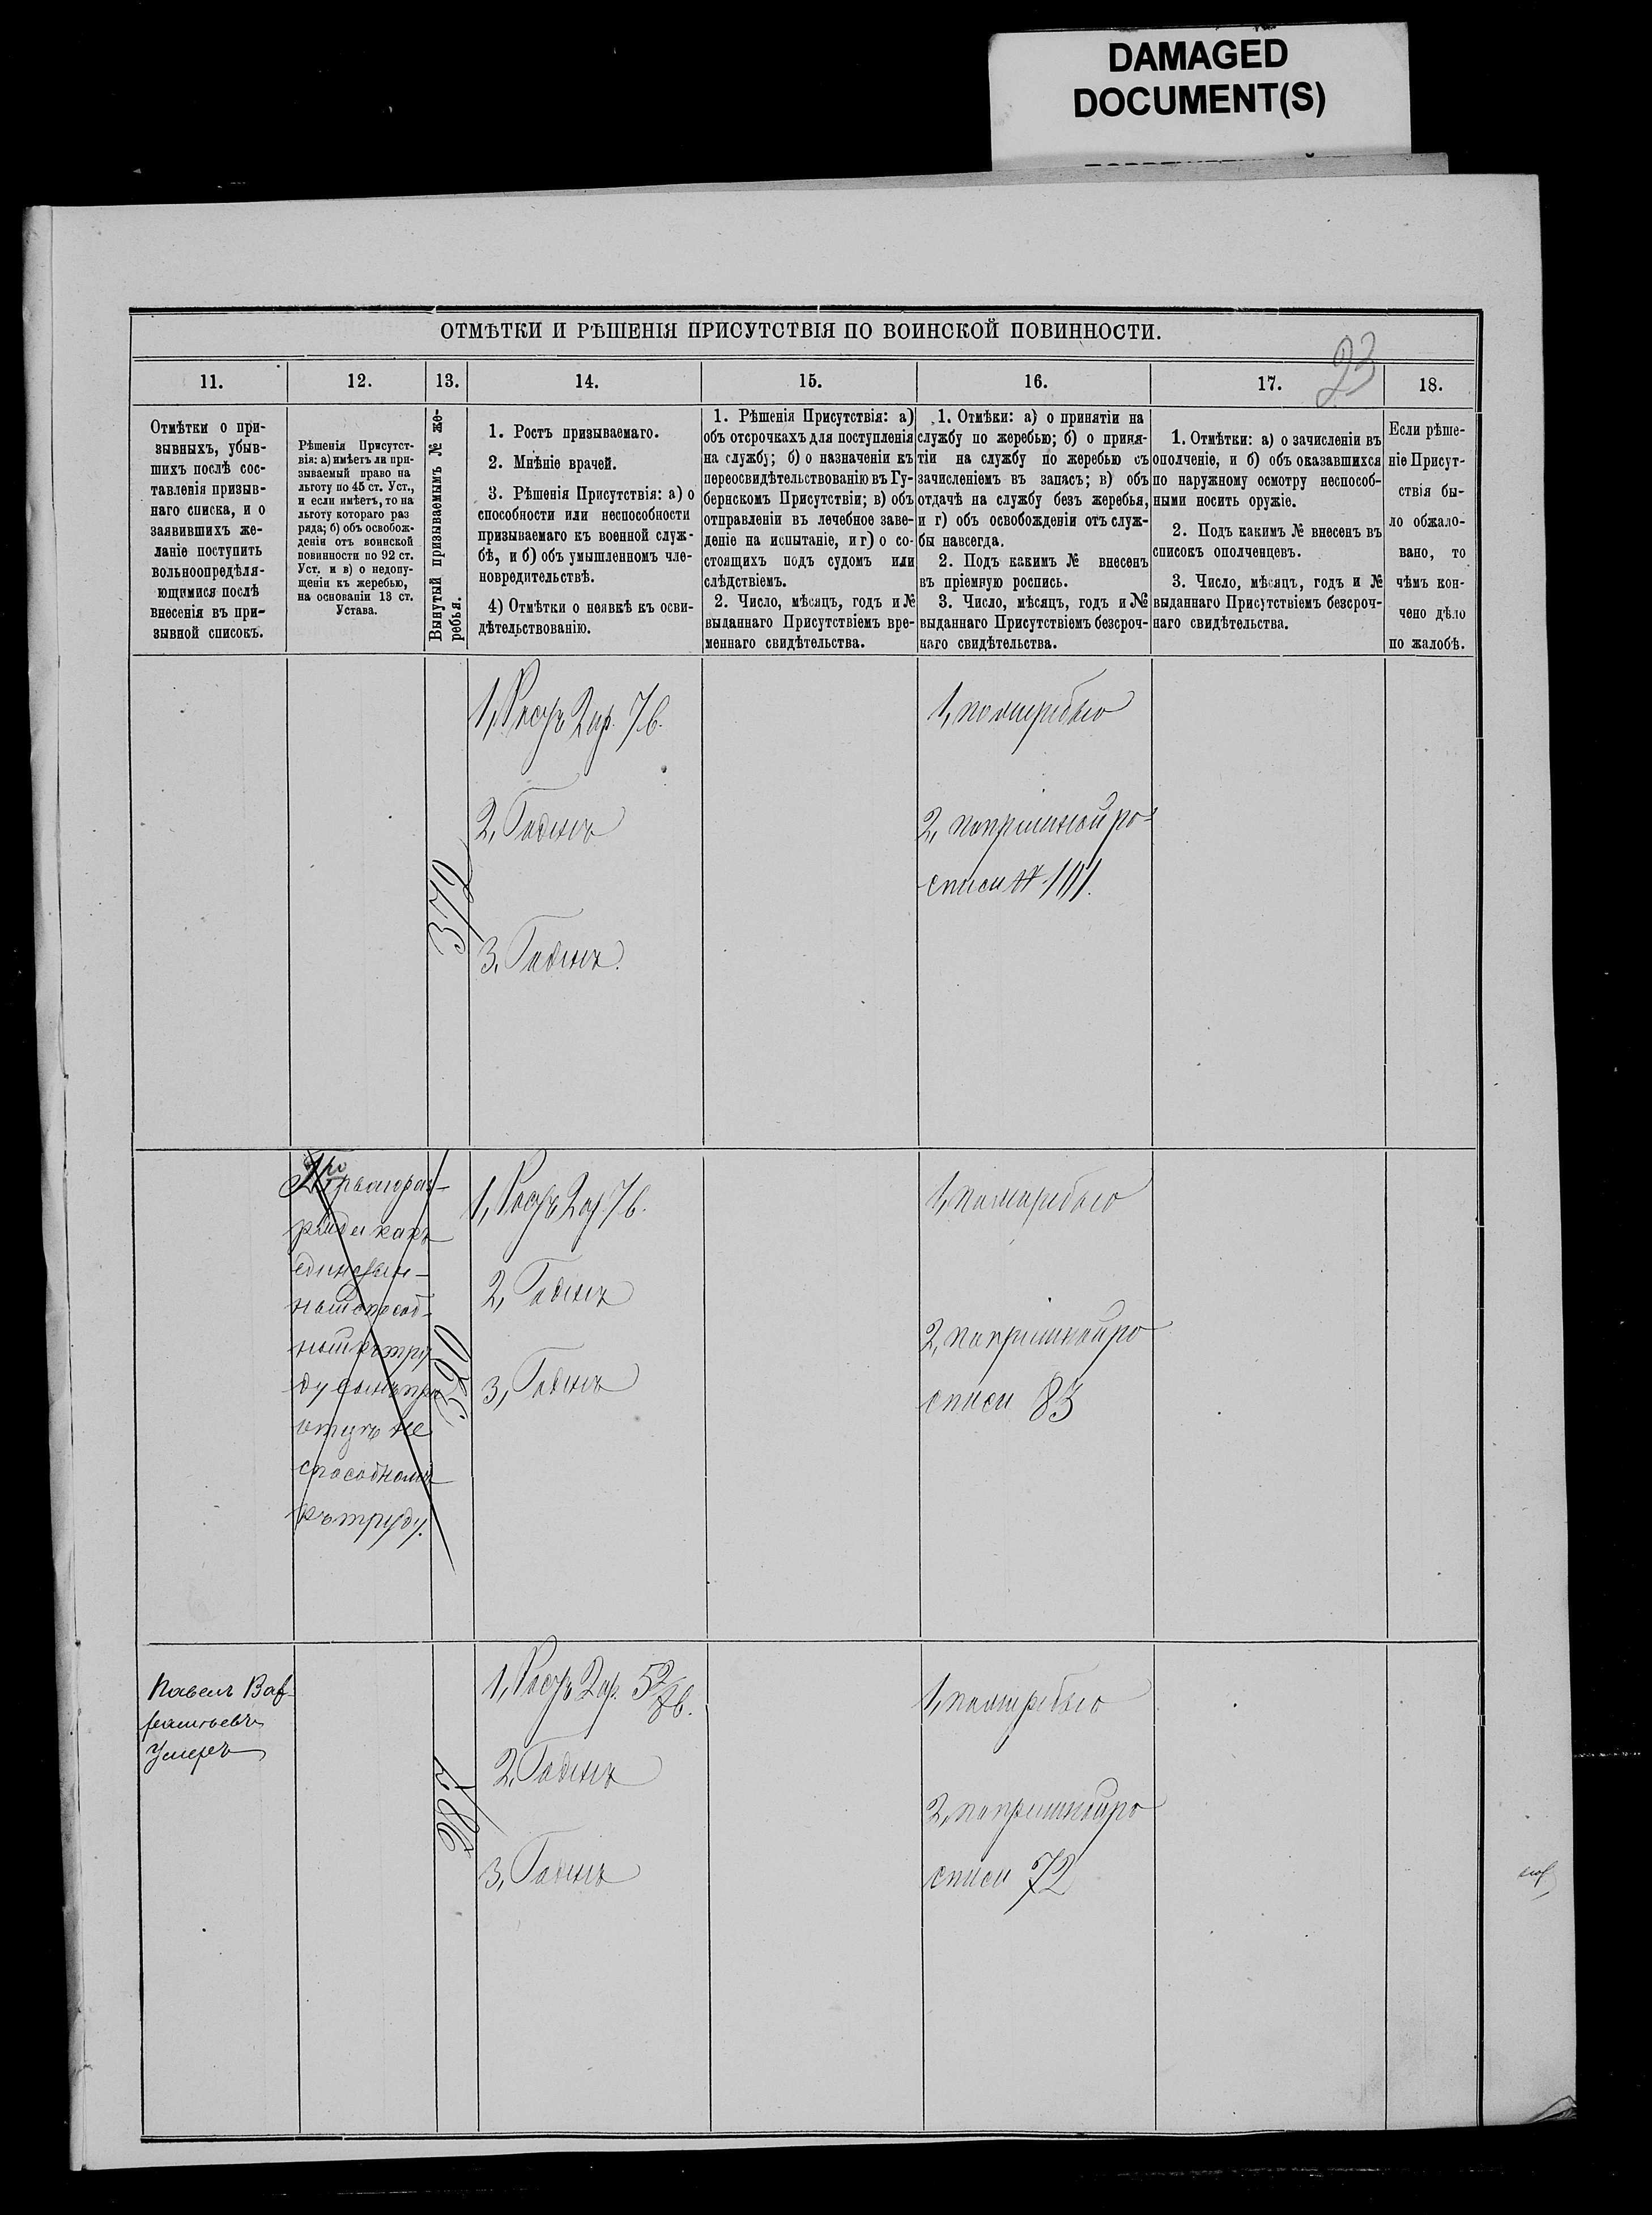 DAMAGED
DOCUMENT(S)
ОТМѢТКИ И РѢШЕНІЯ ПРИСУТСТВІЯ ПО ВОИНСКОЙ ПОВИННОСТИ.
23
11.
12.
13.
14.
15.
16.
17.
18.
Отмѣтки о при-
зывныхъ, убыв-
шихъ послѣ сос-
тавленія призыв-
наго списка, и о
заявившихъ же-
ланіе поступить
вольноопредѣля-
ющимися послѣ
внесенія въ при-
зывной списокъ.
Рѣшенія Присутст-
вія: а) имѣетъ ли при-
зываемый право на
льготу по 45 ст. Уст.,
и если имѣетъ, то на
льготу котораго раз
ряда; б) объ освобож-
деніи отъ воинской
повинности по 92 ст.
Уст. и в) о недопу-
щеніи къ жеребью,
на основаніи 13 ст.
Устава.
Вынутый призываемымъ № же-
ребья.
1. Ростъ призываемаго.
2. Мнѣніе врачей.
3. Рѣшенія Присутствія: а) о
способности или неспособности
призываемаго къ военной служ-
бѣ, и б) объ умышленномъ чле-
новредительствѣ.
4) Отмѣтки о неявкѣ къ осви-
дѣтельствованію.
1. Рѣшенія Присутствія: а)
объ отсрочкахъ для поступленія
на службу; б) о назначеніи къ
переосвидѣтельствованію въ Гу-
бернскомъ Присутствіи; в) объ
отправленіи въ лечебное заве-
деніе на испытаніе, и г) о со-
стоящихъ подъ судомъ или
слѣдствіемъ.
2. Число, мѣсяцъ, годъ и №
выданнаго Присутствіемъ вре-
меннаго свидѣтельства.
1. Отмѣки: а) о принятіи на
службу по жеребью; б) о приня-
тіи на службу по жеребью съ
зачисленіемъ въ запасъ; в) объ
отдачѣ на службу безъ жеребья,
и г) объ освобожденіи отъ служ-
бы навсегда.
2. Подъ какимъ № внесенъ
въ пріемную роспись.
3. Число, мѣсяцъ, годъ и №
выданнаго Присутствіемъ безсроч-
наго свидѣтельства.
1. Отмѣтки: а) о зачисленіи въ
ополченіе, и б) объ оказавшихся
по наружному осмотру неспособ-
ными носить оружіе.
2. Подъ какимъ № внесенъ въ
списокъ ополченцевъ.
3. Число, мѣсяцъ, годъ и №
выданнаго Присутствіемъ безсроч-
наго свидѣтельства.
Если рѣше-
ніе Присут-
ствія бы-
ло обжало-
вано, то
чѣмъ кон-
чено дѣло
по жалобѣ.
372
1, Ростъ 2 ар. 7 в.
2, Годенъ
3, Годенъ.
1, по жеребью
2, по пріемной ро-
списи № 101.
раз-
ряда какъ
единствен-
ный способ-
ный къ тру-
ду сынъ при
отцѣ не
способномъ
къ труду.
320
1, Ростъ 2 ар 7 в.
2, Годенъ
3, Годенъ
1, по жеребью
2, по пріемной ро
списи 83
Павелъ
Умеръ
287
1, Ростъ 2 ар. 5 2/8 в.
2, Годенъ
3, Годенъ
1, по жеребью
2, по пріемной ро
списи 72